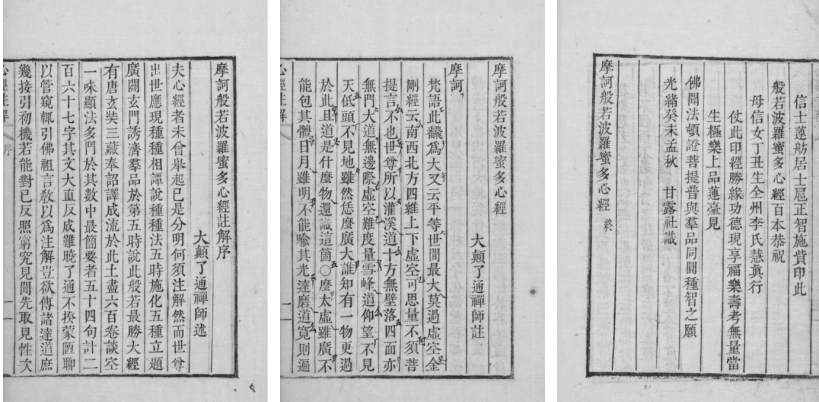 摩訶般若波羅蜜多心經註解序
大顛了通禪師述
夫心經者未曾舉起已是分明何須注解然而世尊
出世應現種種相譚說種種法五時施化五種立題
廣闢玄門誘濟羣品於第五時說此般若最勝大經
有唐玄奘三藏奉詔譯成流於此土盡六百卷談空
一味顯法多門於其數中最簡要者五十四句計二
百六十七字其文大直反成難曉了通不揆蒙陋聊
以管窺輒引佛祖言敎以爲注解豈欲傳諸達道庶
幾接引初機若能對己反照窮究見聞先取見性次
心經註解 序 一
摩訶般若波羅蜜多心經
大顛了通禪師註
摩訶
梵語此飜爲大又云平等世間最大莫過虛空金
剛經云南西北方四維上下虛空可思量不須菩
提言不也世尊所以灌溪道十方無壁落四面亦
無門大道無邊際虛空難度量雪峰道仰望不見
天低頭不見地雖然恁麼廣大誰知有一物更過
於此且道是什麼物還識這箇〇麼太虛雖廣不
能包其體日月雖明不能喻其光達磨道寬則遍
心經註解 一
信士蓮舫居士正智施貲印此
般若波羅蜜多心經百本恭祝
母信女丁丑生全州李氏慧眞行
仗此印經勝緣功德現享福樂壽考無量當
生極樂上品蓮臺見
佛聞法頓證菩提普與羣品同圓種智之願
光緒癸未孟秋 甘露社識
摩訶般若波羅蜜多心經 終